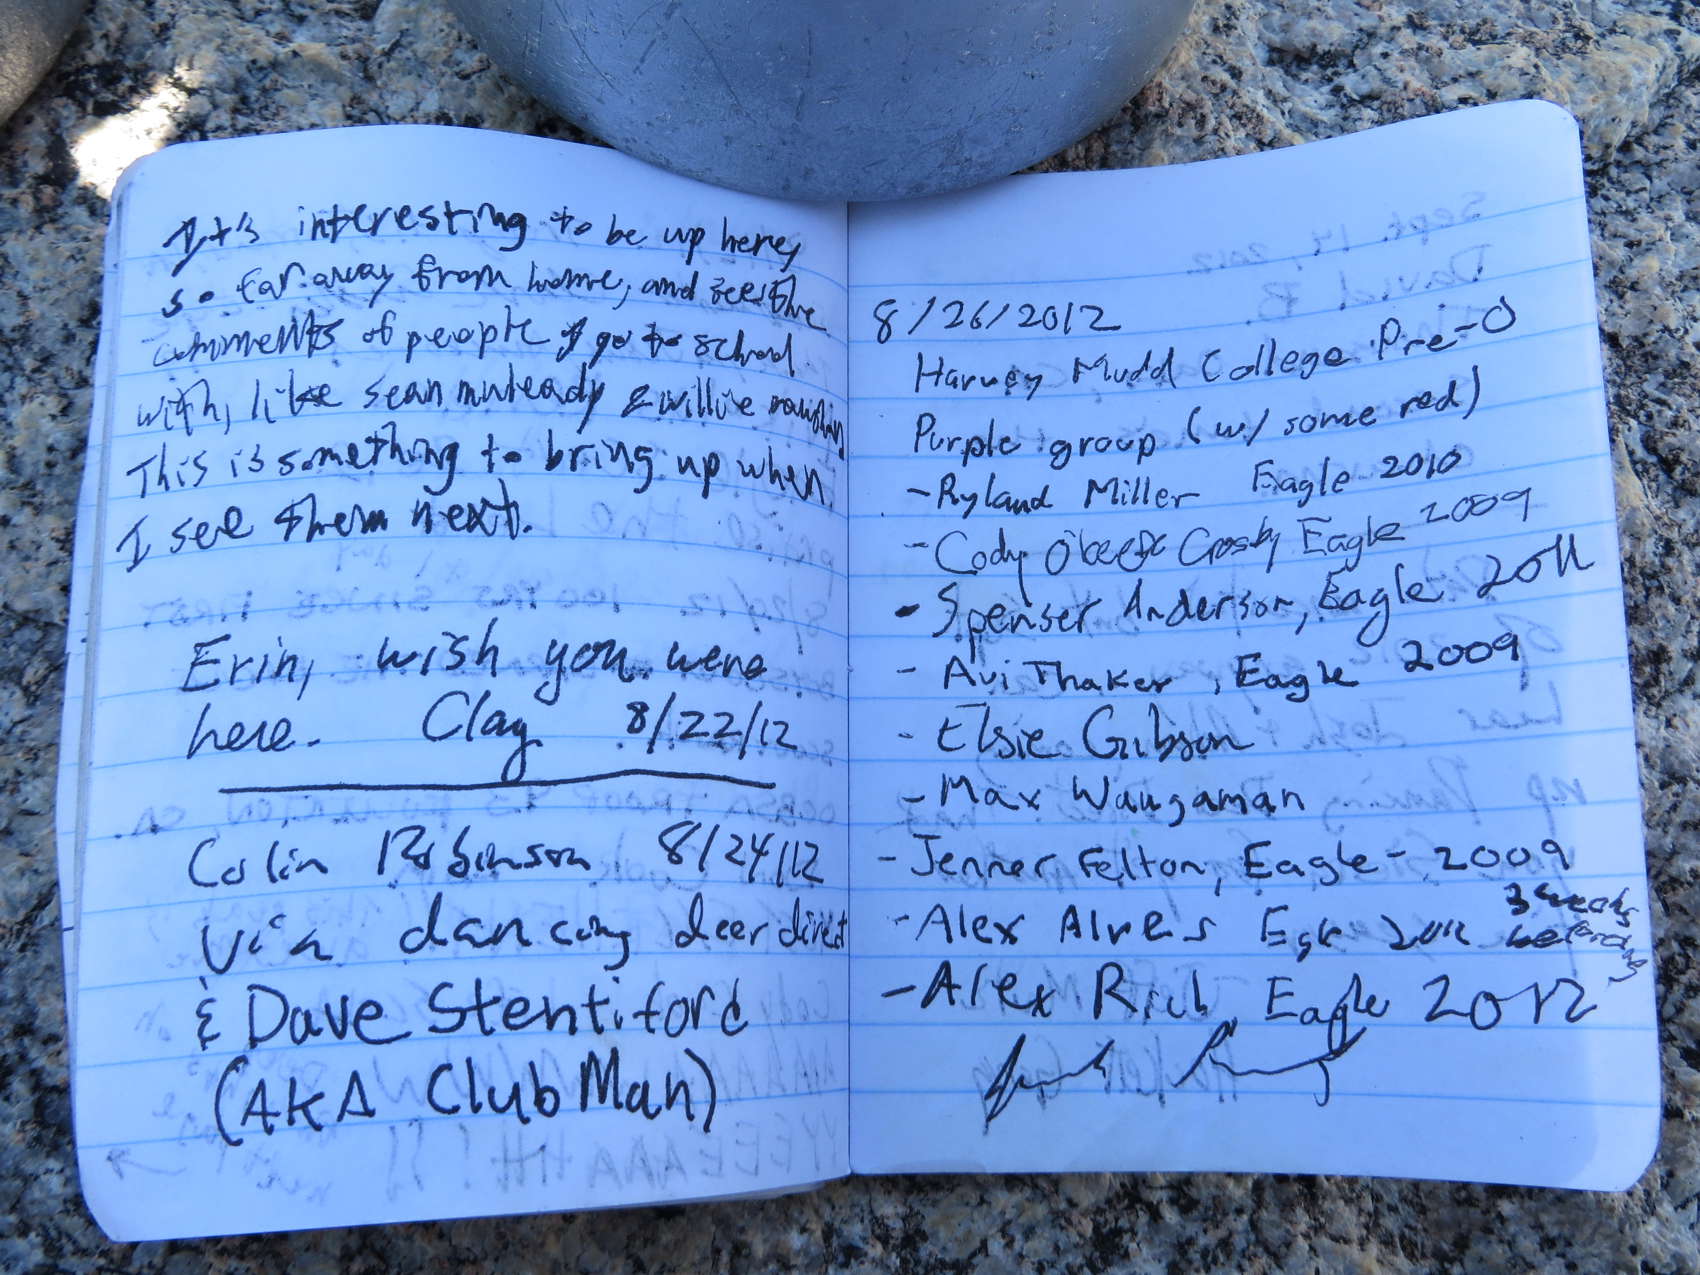 It's interesting to be up here,
so far away from home, and see the
comments of people I go to school
with, like sean muleady & willie
This is something to bring up when
I see them next.
Erin, wish you were
here. Clay 8/22/12
Colin Robinson 8/24/12
via dancing deer direct
& Dave Stentiford
(AKA Club Man)
8/26/2012
Harvey Mudd College Pre-O
Purple group (w/ some red)
- Ryland Miller Eagle 2010
- Cody O'keefe Crosby Eagle 2009
- Spenser Anderson, Eagle 2011
- Avi Thaker, Eagle 2009
- Elsie Gibson
- Max Waugaman
- Jenner Felton, Eagle - 2009
- Alex Alves Egle 2012 3 weeks
before
- Alex Rich, Eagle 2012